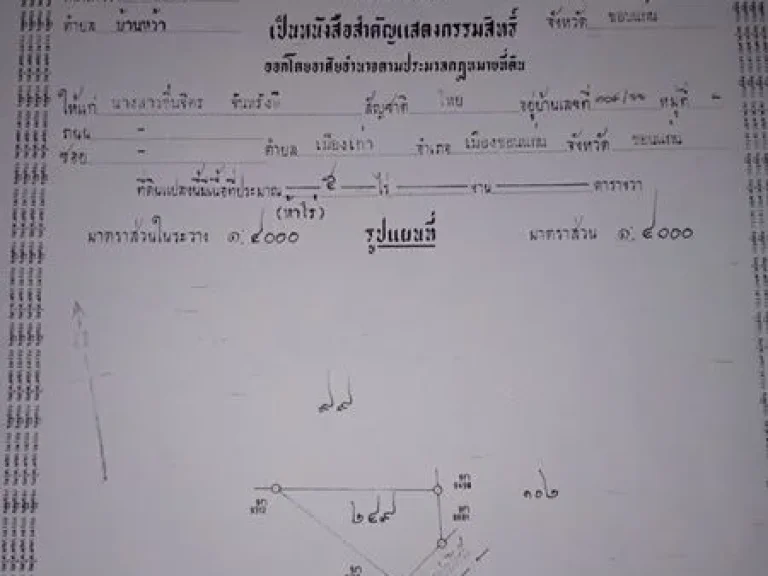 ตำบล บ้านหว้า
เป็นหนังสือสำคัญแสดงกรรมสิทธิ์
จังหวัด ขอนแก่น
ออกโดยอาศัยอำนาจตามประมวลกฎหมายที่ดิน
ให้แก่ นางสาวชื่นจิตร จันทรังษี สัญชาติ ไทย อยู่บ้านเลขที่ หมู่ที่ -
ถนน -
ซอย - ตำบล เมืองเก่า อำเภอ เมืองขอนแก่น จังหวัด ขอนแก่น
ที่ดินแปลงนี้มีเนื้อที่ประมาณ ๕ ไร่ งาน ตารางวา
(ห้าไร่)
มาตราส่วนในระวาง ๑:๔๐๐๐ รูปแผนที่ มาตราส่วน ๑:๔๐๐๐
๙๙
๒๔๙
๑๐๒